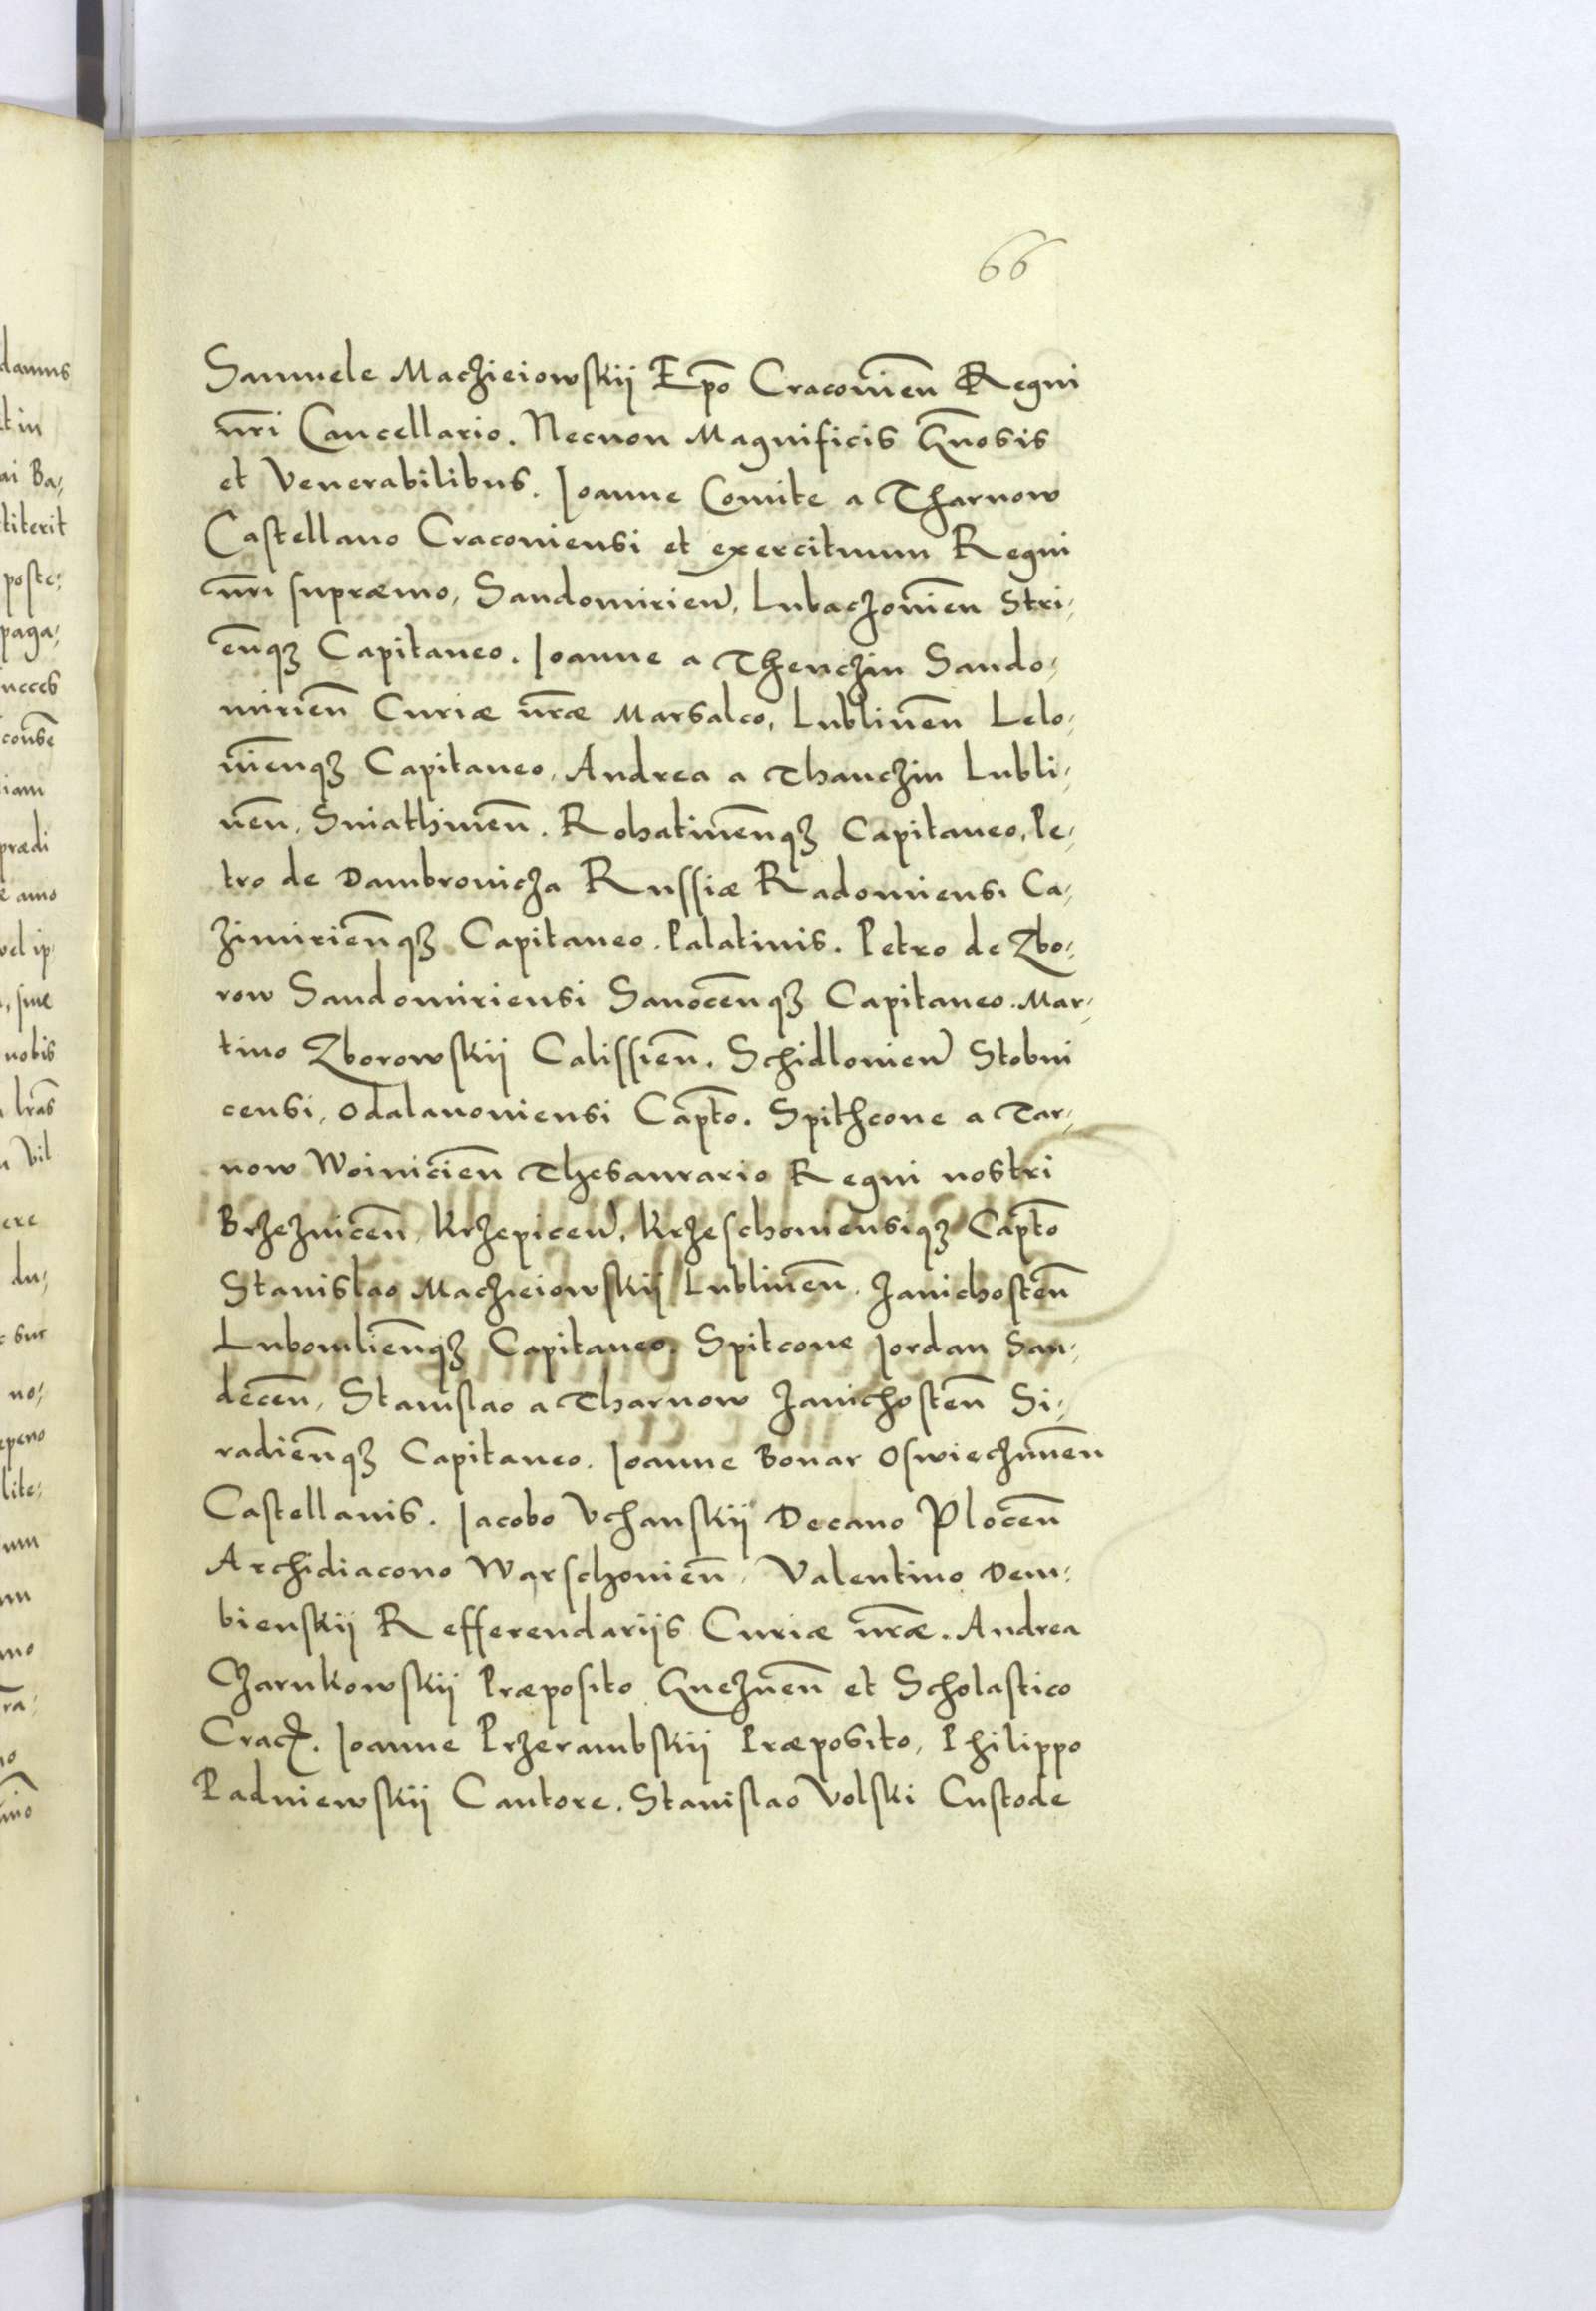 66
Samuele Maczieiowskij Ep̃o Cracouieñ Regni
ñri Cancellario. Necnon Magnificis G̃nosis
et Venerabilibus. Ioanne Comite a Tharnow
Castellano Cracouiensi et exercituum Regni
ñri supræmo, Sandomirieñ, Lubaczouieñ Stri,
eñqȝ Capitaneo. Ioanne a Thenczin Sando,
mirieñ Curiæ ñræ Marsalco, Lublineñ Lelo,
uieñqȝ Capitaneo, Andrea a Thanczin Lubli,
neñ, Sniathineñ. Rohatineñqȝ Capitaneo, Pe,
tro de Dambrouicza Russiæ Radomiensi Ca,
zimirieñqȝ Capitaneo. Palatinis. Petro de Zbo,
row Sandomiriensi Sanoceñqȝ Capitaneo. Mar,
tino Zborowskij Calissieñ. Schidlouieñ Stobni
censi, Odalanouiensi Cap̃to. Spithcone a Tar,
now Woinicieñ Thesaurario Regni nostri
Brzezniceñ, Krzepiceñ, Krzeschouiensiqȝ Cap̃to
Stanislao Maczieiowskij Lublineñ. Zauichosteñ
Lubomlieñqȝ Capitaneo. Spitcone Jordan San,
deceñ, Stanislao a Tharnow Zauichosteñ Si,
radieñqȝ Capitaneo. Ioanne Bonar Oswieczimeñ
Castellanis. Jacobo Vchanskij Decano Ploceñ
Archidiacono Warschouieñ, Valentino Dem,
bienskij Refferendarijs Curiæ ñræ. Andrea
Czarnkowskij Præposito Gnezneñ et Scholastico
Crac. Ioanne Przerambskij Præposito, Philippo
Padniewskij Cantore. Stanislao Volski Custode
damus
t in
ai Ba,
titerit
poste,
paga,
iam
prædi
vel ip
nobis
lr̃as
ere
du,
no,
lite,